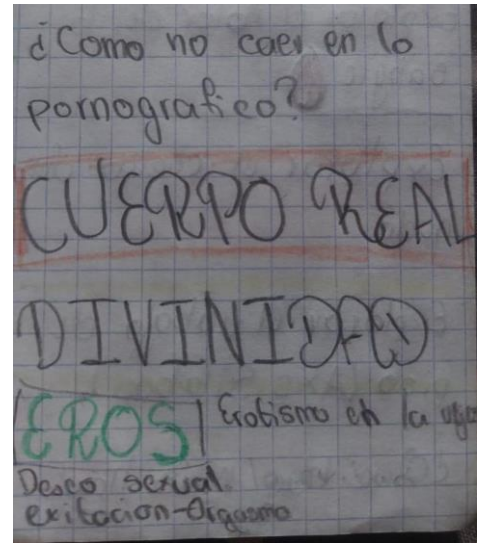 ¿Como no caer en lo
pornografico?
CUERPO REAL
DIVINIDAD
EROS Erotismo en la
Deseo sexual.
exitacion-Orgasmo